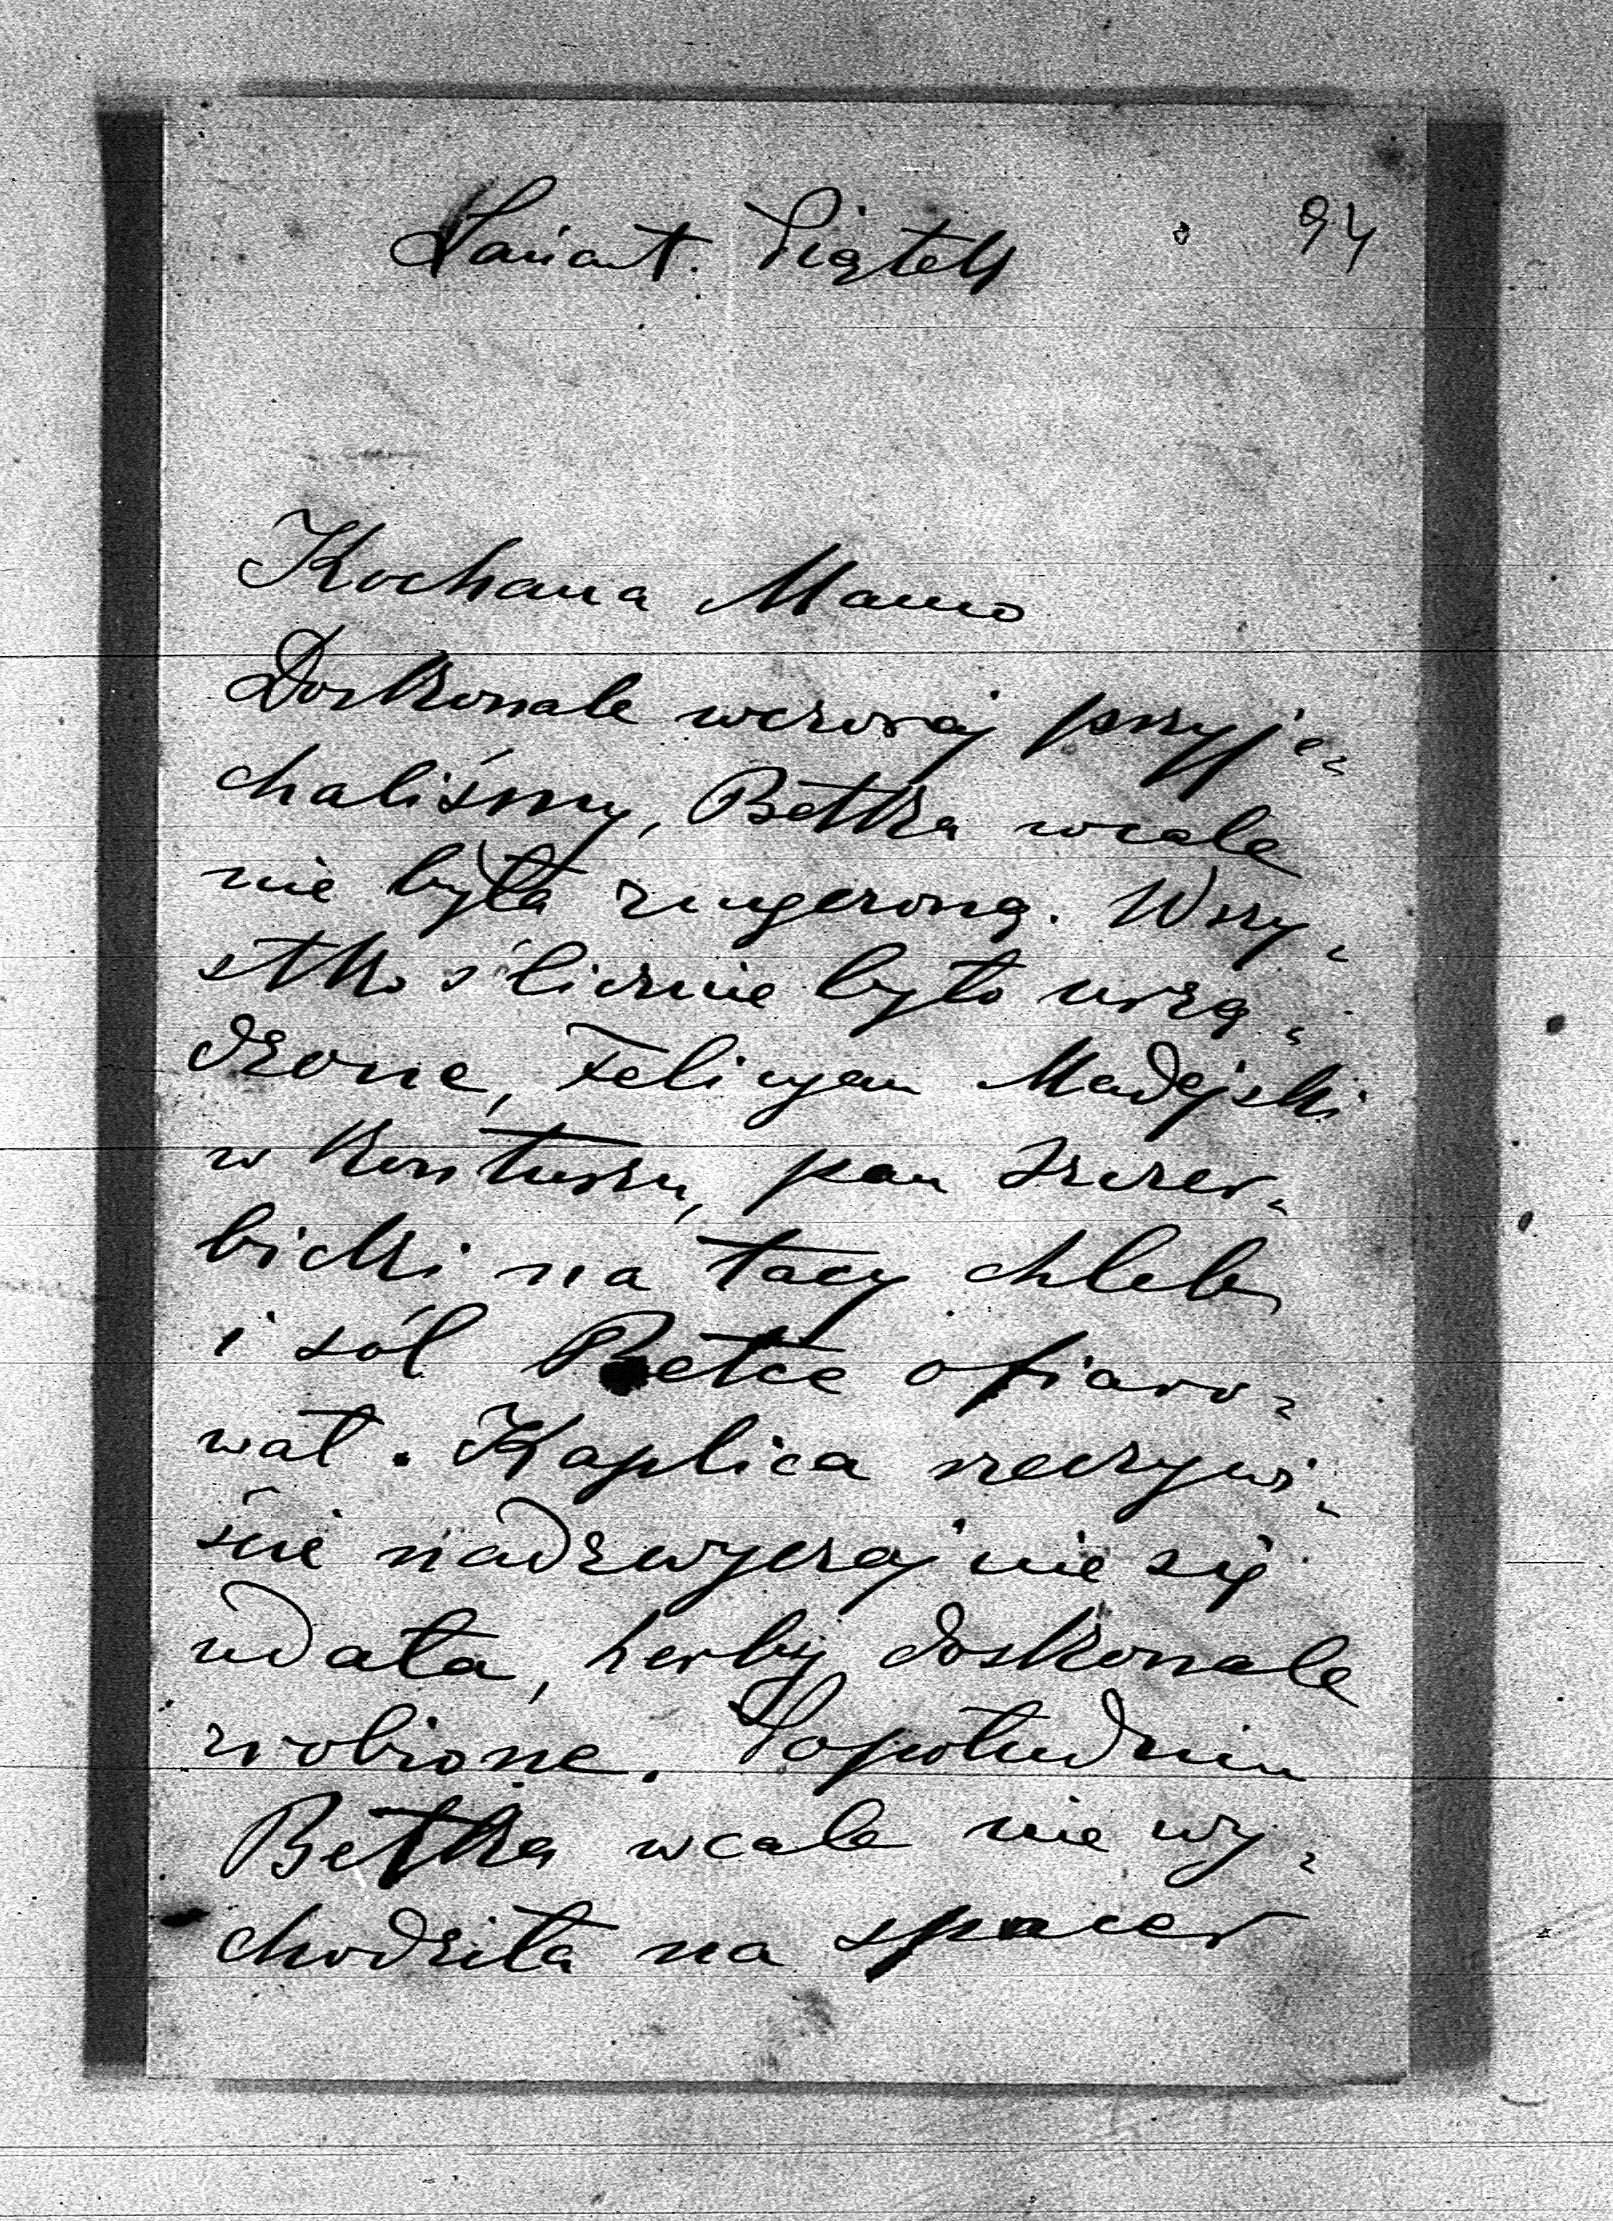 Łańcut. Piątek 94
Kochana Mamo
Doskonale wczoraj przyje-
chaliśmy, Betka wcale
nie była zmęczoną. Wszy-
stko ślicznie było urzą-
dzone, Felicyan Madejski
w kontuszu, pan Szczer-
bicki na tacy chleb
i sól Betce ofiaro-
wał. Kaplica rzeczywi-
ście nadzwyczajnie się
udała, herby doskonale
zrobione. Popołudniu
Betka wcale nie wy-
chodziła na spacer